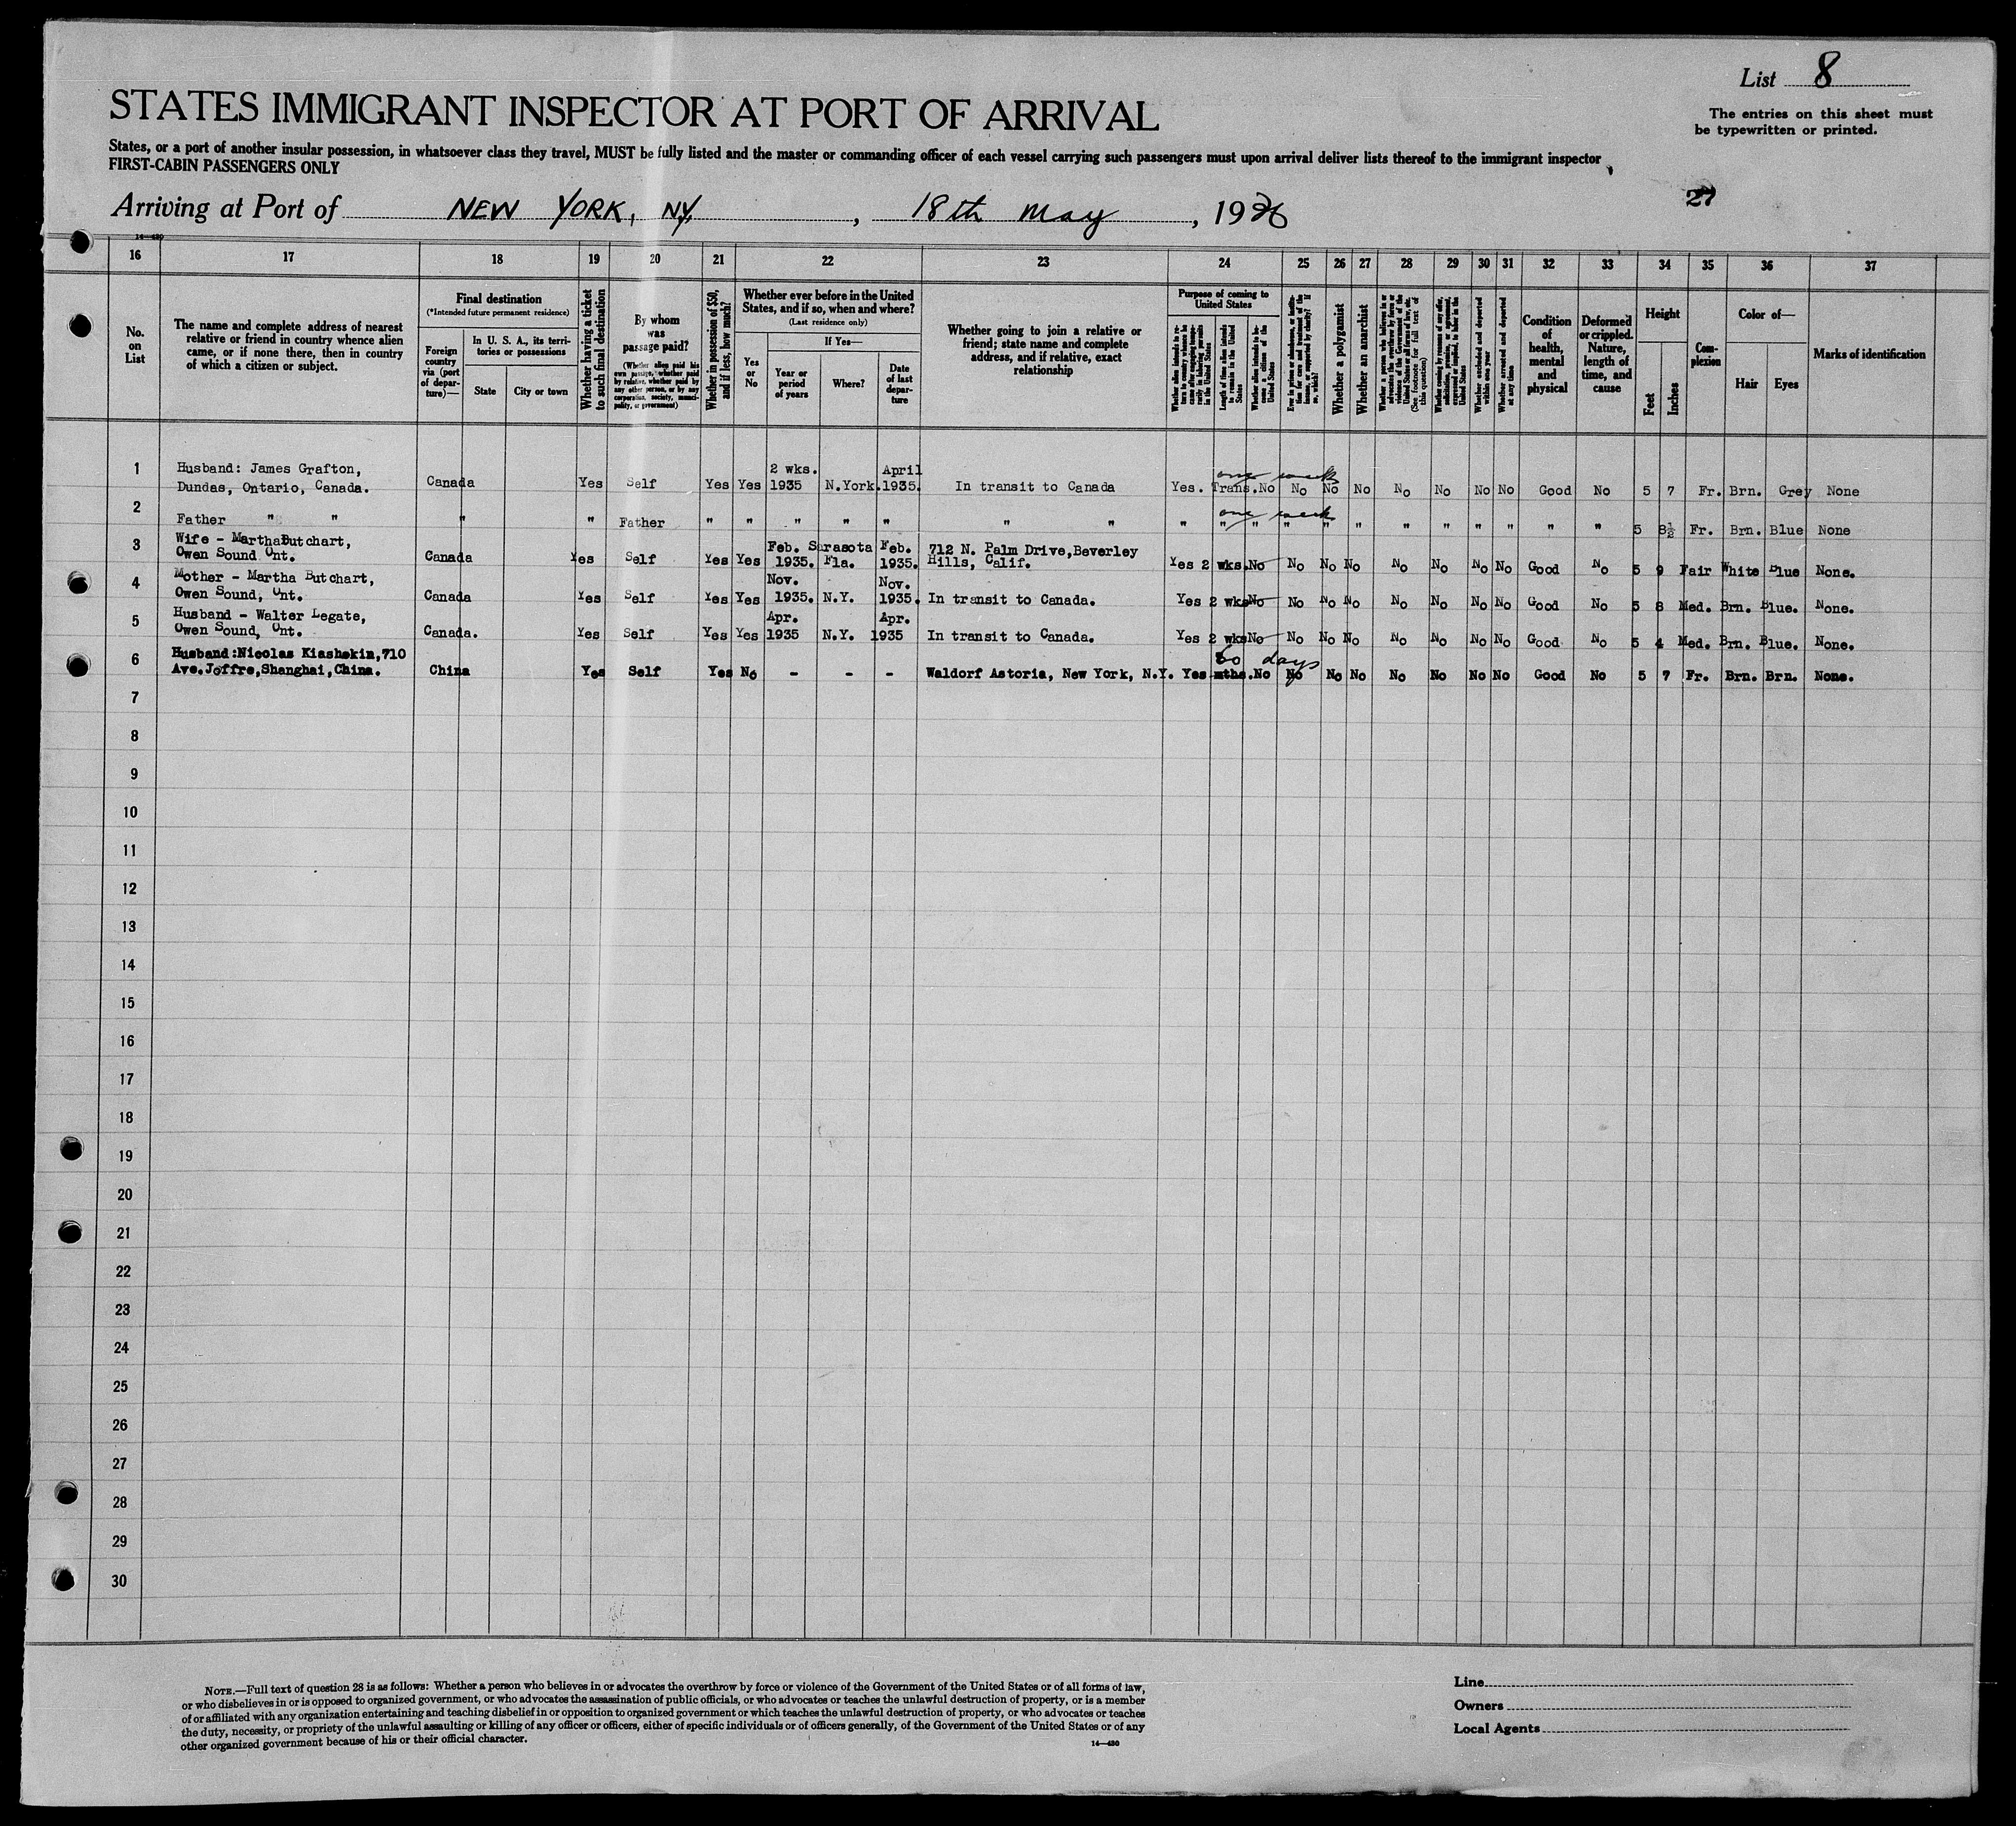 List 8
STATES IMMIGRANT INSPECTOR AT PORT OF ARRIVAL
The entries on this sheet must
be typewritten or printed.
States, or a port of another insular possession, in whatsoever class they travel, MUST be fully listed and the master or commanding officer of each vessel carrying such passengers must upon arrival deliver lists thereof to the immigrant inspector
FIRST-CABIN PASSENGERS ONLY
Arriving at Port of NEW YORK, NY, 18th May, 1936
27
14—480
16 17 18 19 20 21 22 23 24 25 26 27 28 29 30 31 32 33 34 35 36 37
No.
on
List
The name and complete address of nearest
relative or friend in country whence alien
came, or if none there, then in country
of which a citizen or subject.
Final destination
(*Intended future permanent residence)
Foreign
country
via (port
of depar-
ture)—
In U. S. A., its terri-
tories or possessions
State
City or town
Whether having a ticket
to such final destination
By whom
was
passage paid?
(Whether alien paid his
own passage, whether paid
by relative, whether paid by
any other person, or by any
corporation, society, munici-
pality, or government)
Whether in possession of $50,
and if less, how much?
Whether ever before in the United
States, and if so, when and where?
(Last residence only)
Yes
or
No
If Yes—
Year or
period
of years
Where?
Date
of last
depar-
ture
Whether going to join a relative or
friend; state name and complete
address, and if relative, exact
relationship
Purpose of coming to
United States
Length of time alien intends
to remain in the United
States
Whether alien intends to be-
come a citizen of the
United States
Whether a polygamist
Whether an anarchist
(See footnote for full text of
this question)
Whether excluded and deported
within one year
Whether arrested and deported
at any time
Condition
of
health,
mental
and
physical
Deformed
or crippled.
Nature,
length of
time, and
cause
Height
Feet
Inches
Com-
plexion
Color of—
Hair
Eyes
Marks of identification
1 Husband: James Grafton, 2 wks. April one week
Dundas, Ontario, Canada. Canada Yes Self Yes Yes 1935 N.York. 1935. In transit to Canada Yes. Trans. No No No No No No No No Good No 5 7 Fr. Brn. Grey None
2 one week
Father " " " " Father " " " " " " " " " " " " " " " " " " " 5 8½ Fr. Brn. Blue None
3 Wife - Martha Butchart, Feb. Sarasota Feb. 712 N. Palm Drive, Beverley
Owen Sound Ont. Canada Yes Self Yes Yes 1935. Fla. 1935. Hills, Calif. Yes 2 wks. No No No No No No No No Good No 5 9 Fair White Blue None.
4 Mother - Martha Butchart, Nov. Nov.
Owen Sound, Ont. Canada Yes Self Yes Yes 1935. N.Y. 1935. In transit to Canada. Yes 2 wks No No No No No No No No Good No 5 8 Med. Brn. Blue. None.
5 Husband - Walter Legate, Apr. Apr.
Owen Sound, Ont. Canada. Yes Self Yes Yes 1935 N.Y. 1935 In transit to Canada. Yes 2 wks No No No No No No No No Good No 5 4 Med. Brn. Blue. None.
6 Husband: Nicolas Kiashekin, 710 60 days
Ave. Joffre, Shanghai, China. China Yes Self Yes No - - - Waldorf Astoria, New York, N.Y. Yes mths. No No No No No No No No Good No 5 7 Fr. Brn. Brn. None.
7
8
9
10
11
12
13
14
15
16
17
18
19
20
21
22
23
24
25
26
27
28
29
30
NOTE.—Full text of question 28 is as follows: Whether a person who believes in or advocates the overthrow by force or violence of the Government of the United States or of all forms of law,
or who disbelieves in or is opposed to organized government, or who advocates the assassination of public officials, or who advocates or teaches the unlawful destruction of property, or is a member
of or affiliated with any organization entertaining and teaching disbelief in or opposition to organized government or which teaches the unlawful destruction of property, or who advocates or teaches
the duty, necessity, or propriety of the unlawful assaulting or killing of any officer or officers, either of specific individuals or of officers generally, of the Government of the United States or of any
other organized government because of his or their official character.
14—480
Line
Owners
Local Agents